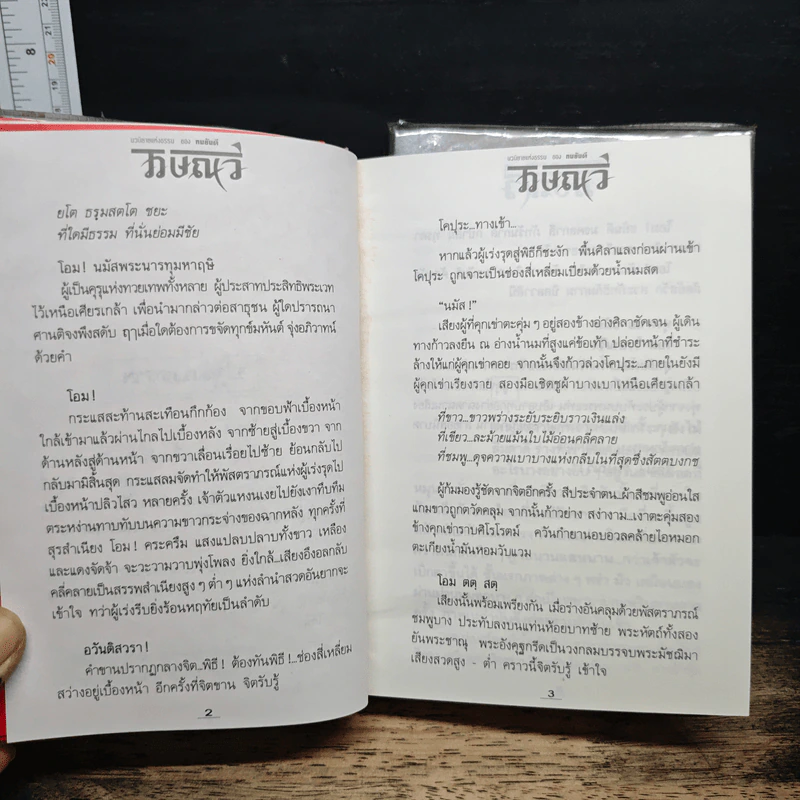 8
21
20
นวนิยายแห่งธรรม ของ คนธันที
วิษณุวี
ยโต ธรฺมสตโต ชยะ
ที่ใดมีธรรม ที่นั่นย่อมมีชัย
โอม! นมัสพระนารทมุหาฤษิ
ผู้เป็นคุรุแห่งทวยเทพทั้งหลาย ผู้ประสาทประสิทธิพระเวท
ไว้เหนือเศียรเกล้า เพื่อนำมากล่าวต่อสาธุชน ผู้ใดปรารถนา
ศานติจงพึงสดับ ฤๅเมื่อใดต้องการขจัดทุกข์มหันต์ จุ่งอภิวาทน์
ด้วยคำ
โอม!
กระแสสะท้านสะเทือนกึกก้อง จากขอบฟ้าเบื้องหน้า
ใกล้เข้ามาแล้วผ่านไกลไปเบื้องหลัง จากซ้ายสู่เบื้องขวา จาก
ด้านหลังสู่ด้านหน้า จากขวาเลื่อนเรื่อยไปซ้าย ย้อนกลับไป
กลับมามิสิ้นสุด กระแสลมจัดทำให้พัสตราภรณ์แห่งผู้เร่งรุดไป
เบื้องหน้าปลิวไสว หลายครั้ง เจ้าตัวแหงนเงยไปยังเงาทึบทึม
ตระหง่านทาบทับบนความขาวกระจ่างของฉากหลัง ทุกครั้งที่
สุรสำเนียง โอม! คระครึม แสงแปลบปลาบทั้งขาว เหลือง
และแดงจัดจ้า จะวะวามวาบพุ่งโพลง ยิ่งใกล้...เสียงอึงอลกลับ
คลี่คลายเป็นสรรพสำเนียงสูง ๆ ต่ำ ๆ แห่งลำนำสวดอันยากจะ
เข้าใจ ทว่าผู้เร่งรีบยิ่งร้อนหฤทัยเป็นลำดับ
อวันติสวรา!
คำขานปรากฏกลางจิต...พิธี! ต้องทันพิธี!...ช่องสี่เหลี่ยม
สว่างอยู่เบื้องหน้า อีกครั้งที่จิตขาน จิตรับรู้
2
นวนิยายแห่งธรรม ของ คนธันที
วิษณุวี
โคปุระ...ทางเข้า...
หากแล้วผู้เร่งรุดสู่พิธีก็ชะงัก พื้นศิลาแลงก่อนผ่านเข้า
โคปุระ ถูกเจาะเป็นช่องสี่เหลี่ยมเปี่ยมด้วยน้ำนมสด
“นมัส!”
เสียงผู้ที่คุกเข่าตะคุ่ม ๆ อยู่สองข้างอ่างศิลาชัดเจน ผู้เดิน
ทางก้าวลงยืน ณ อ่างน้ำนมที่สูงแค่ข้อเท้า ปล่อยหน้าที่ชำระ
ล้างให้แก่ผู้คุกเข่าคอย จากนั้นจึงก้าวล่วงโคปุระ...ภายในยังมี
ผู้คุกเข่าเรียงราย สองมือเชิดชูผ้าบางเบาเหนือเศียรเกล้า
ที่ขาว...ขาวพร่างระยับระยิบราวเงินแล่ง
ที่เขียว...ละม้ายแม้นใบไม้อ่อนคลี่คลาย
ที่ชมพู...ดุจความเบาบางแห่งกลีบในที่สุดซึ่งสัตตบงกช
ผู้ก้มมองรู้ชัดจากจิตอีกครั้ง สีประจำตน...ผ้าสีชมพูอ่อนใส
แกมขาวถูกตวัดคลุม จากนั้นก้าวย่าง สง่างาม...เงาตะคุ่มสอง
ข้างคุกเข่าราบศิโรโรตม์ ควันกำยานอบอวลคล้ายไอหมอก
ตะเกียงน้ำมันหอมวับแวม
โอม ตตฺ สตฺ
เสียงนั้นพร้อมเพรียงกัน เมื่อร่างอันคลุมด้วยพัสตราภรณ์
ชมพูบาง ประทับลงบนแท่นห้อยบาทซ้าย พระหัตถ์ทั้งสอง
ยันพระชาณุ พระอังคุฐกรีดเป็นวงกลมบรรจบพระมัชฌิมา
เสียงสวดสูง - ต่ำ คราวนี้จิตรับรู้ เข้าใจ
3